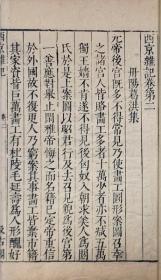 西京雜記卷第二
丹陽葛洪集
元帝後宮既多不得常見乃使畫工圖形案圖召幸
之諸宮人皆賂畫工多者十萬少者亦不減五萬
獨王嬙不肯遂不得見匈奴入朝求美人為閼
氏於是上案圖以昭君行及去召見貌為後宮第
一善應對舉止閒雅帝悔之而名籍已定帝重信
於外國故不復更人乃窮案其事畫工皆棄市籍
其家資皆巨萬畫工有杜陵毛延壽為人形醜好